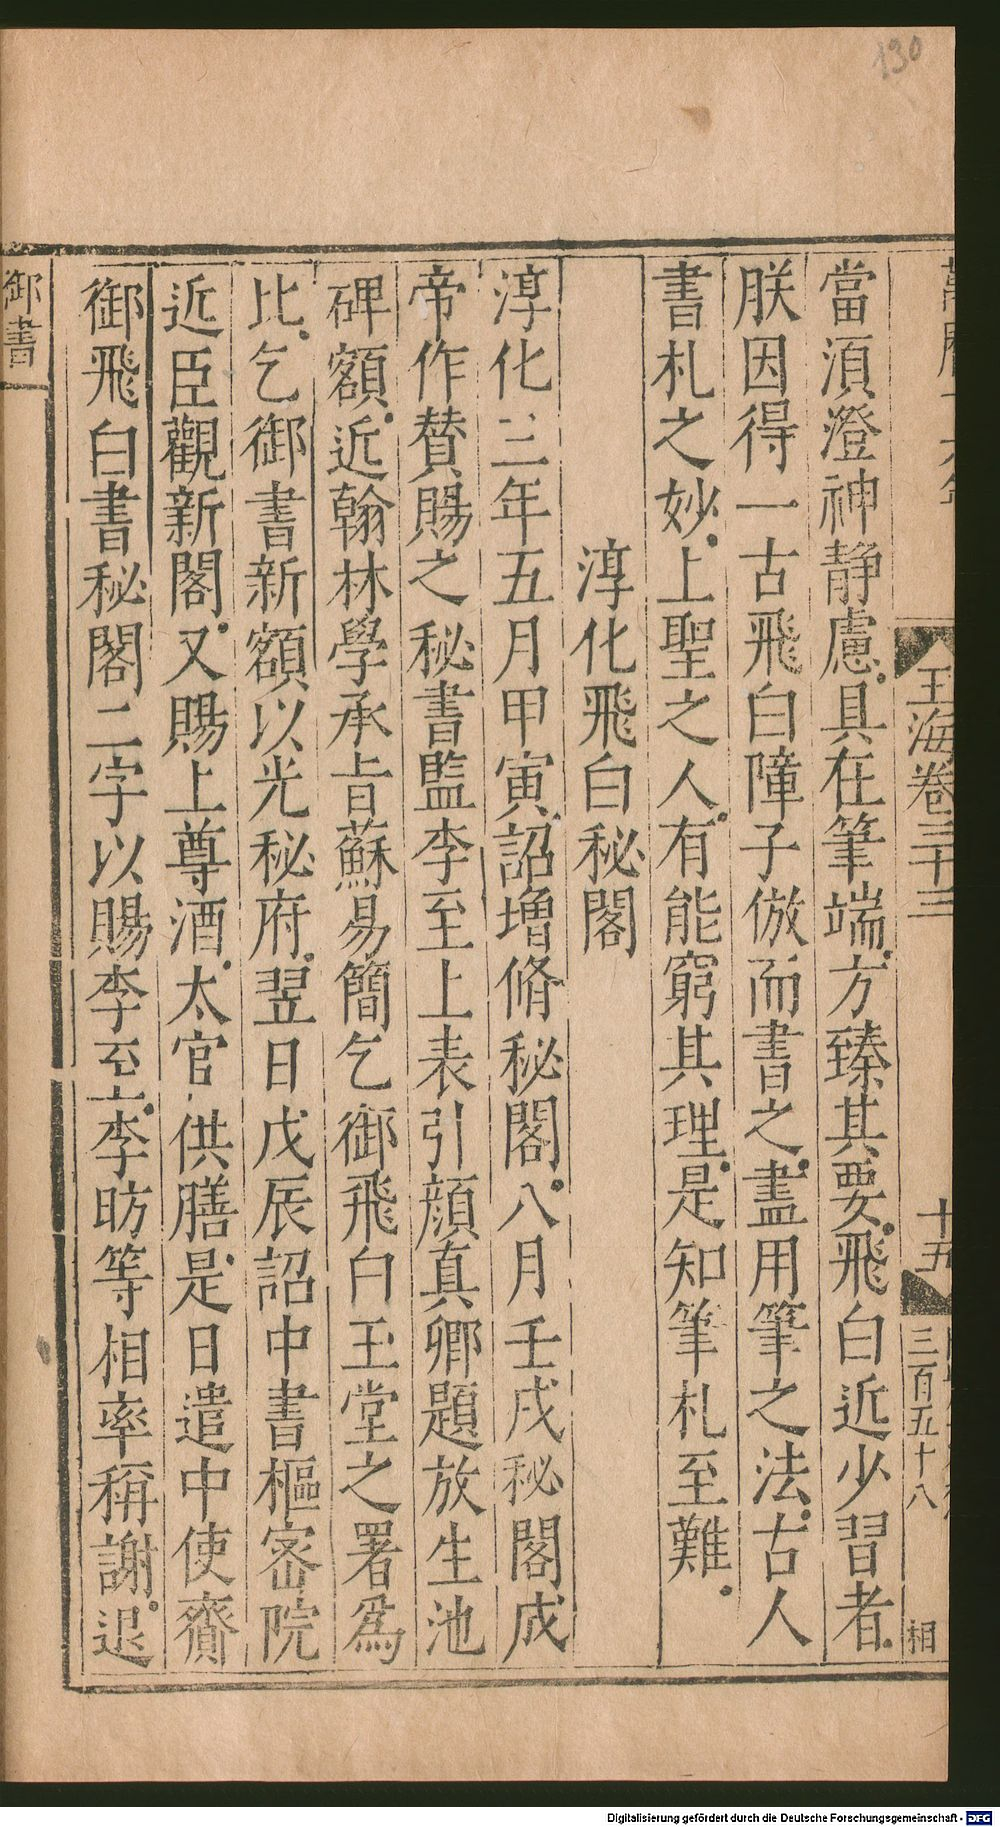 130
玉海卷三十三
十五
三百五十八
相
當須澄神靜慮具在筆端方臻其要飛白近少習者
朕因得一古飛白障子倣而書之盡用筆之法古人
書札之妙上聖之人有能窮其理是知筆札至難
淳化飛白秘閣
淳化三年五月甲寅詔增脩秘閣八月壬戌秘閣成
帝作贊賜之秘書監李至上表引顔真卿題放生池
碑額近翰林學承旨蘇易簡乞御飛白玉堂之署爲
比乞御書新額以光秘府翌日戊辰詔中書樞密院
近臣觀新閣又賜上尊酒太官供膳是日遣中使齎
御飛白書秘閣二字以賜李至李昉等相率稱謝退
御書
Digitalisierung gefördert durch die Deutsche Forschungsgemeinschaft - DFG